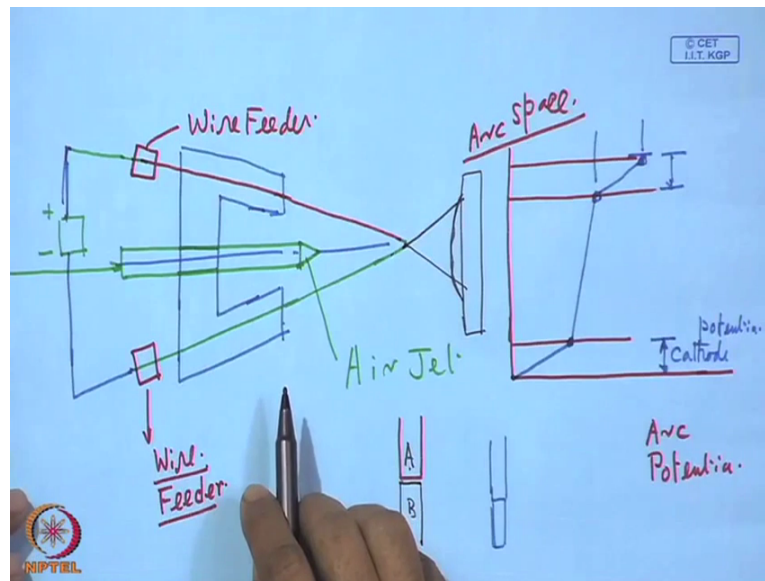 © CET
I.I.T. KGP
Wire Feeder.
Arc Space.
+
-
Air Jet.
potentia.
Cathode
Wire.
Feeder.
A
B
Arc
Potentia.
NPTEL